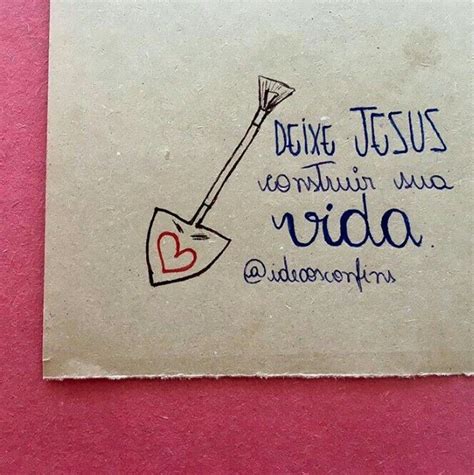 DEIXE JESUS
construir sua
vida.
@ideaosconfins